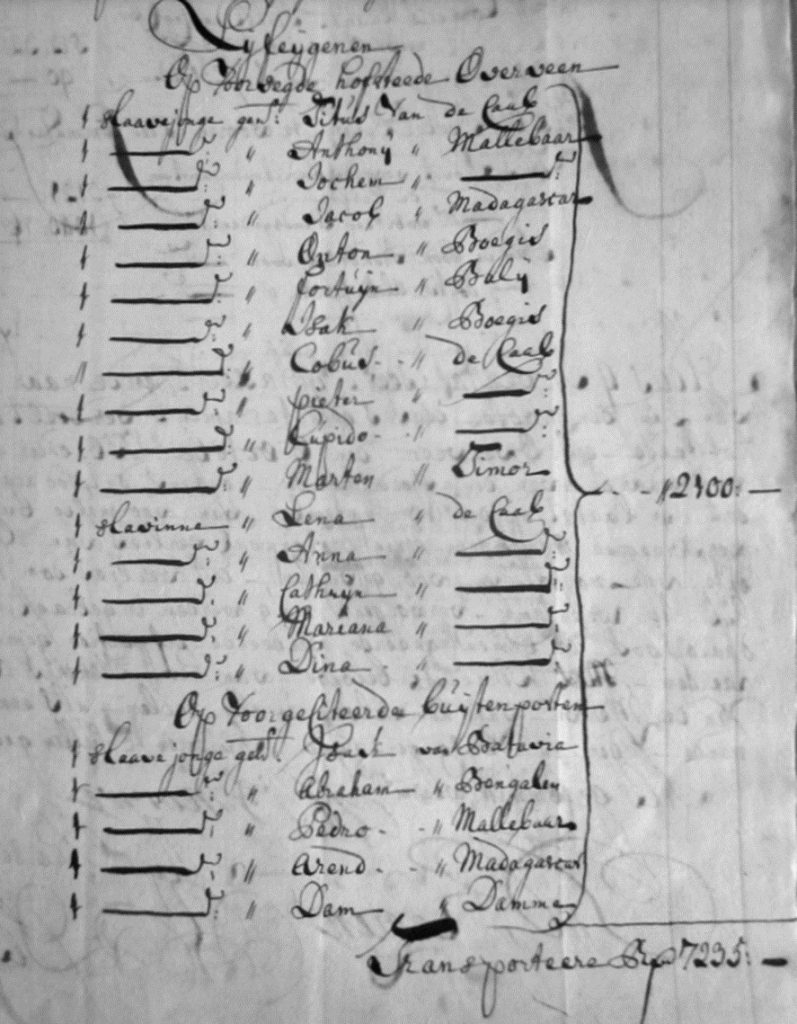 Lijfeijgenen
Op Voorsegde hofsteede Overveen
1 slaave jonge gen:t Titus Van de Caab
1 —— d:o " Anthonij " Mallebaar
1 —— d:o " Jochem " —— d:o
1 —— d:o " Jacob " Madagascar
1 —— d:o " Anton " Boegis
1 —— d:o " fortuijn " Balij
1 —— d:o " Isak " Boegis
" —— d:o " Cobus " de Caab
1 —— d:o " pieter " —— d:o
1 —— d:o " Cupido " —— d:o
1 —— d:o " Marten " Timor
1 slavinne " Lena " de Caab
1 —— d:o " Anna " —— d:o
1 —— d:o " Cathrijn " —— d:o
1 —— d:o " Mariana " —— d:o
1 —— d:o " Dina " —— d:o
" 2400: —
Op Voorgesiteerde buijtenposten
1 slaave jonge gen:t Isack van Batavia
1 —— d:o " Abraham " Bengalen
1 —— d:o " Pedro " Mallebaar
1 —— d:o " Arend " Madagascar
1 —— d:o " Dam " Damma
Transporteere 7295: —